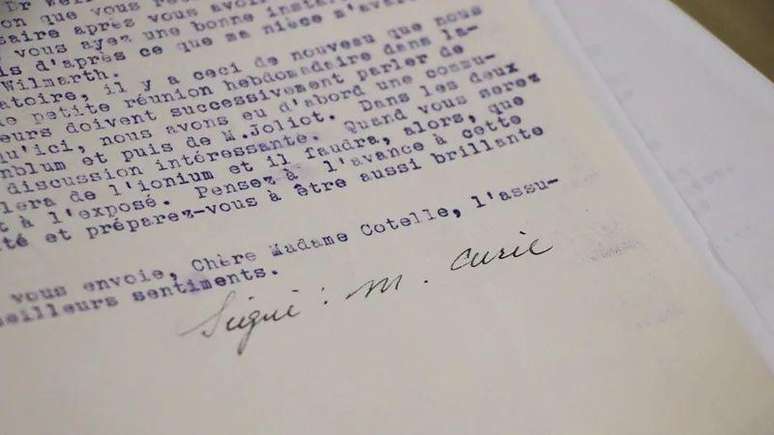 on que vous
saire après vous avoir
vous ayez une bonne
is d'après ce que ma nièce m'ava
Wilmarth.
atoire, il y a ceci de nouveau que nous
e petite réunion hebdomadaire dans la-
eurs doivent successivement parler de
qu'ici, nous avons eu d'abord une commu-
nblum et puis de M.Joliot. Dans les deux
discussion intéressante. Quand vous serez
lera de l'ionium et il faudra, alors, que
t à l'exposé. Pensez à l'avance à cette
té et préparez-vous à être aussi brillante
vous envoie, Chère Madame Cotelle, l'assu-
eilleurs sentiments.
Signé : M. Curie